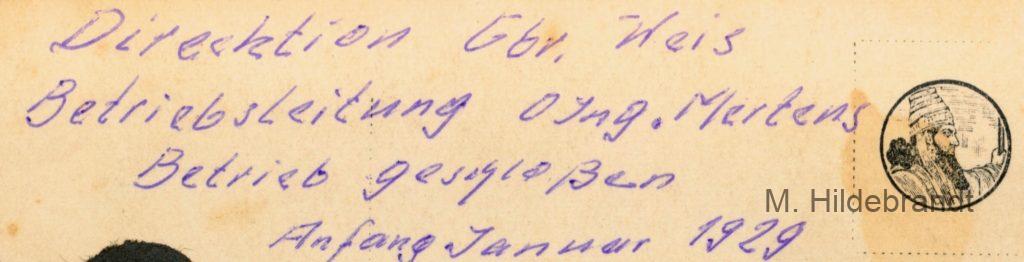 Direcktion Gbr. Weis
Betriebsleitung OJng. Mertens
Betrieb geschloßen
Anfang Januar 1929
M. Hildebrandt